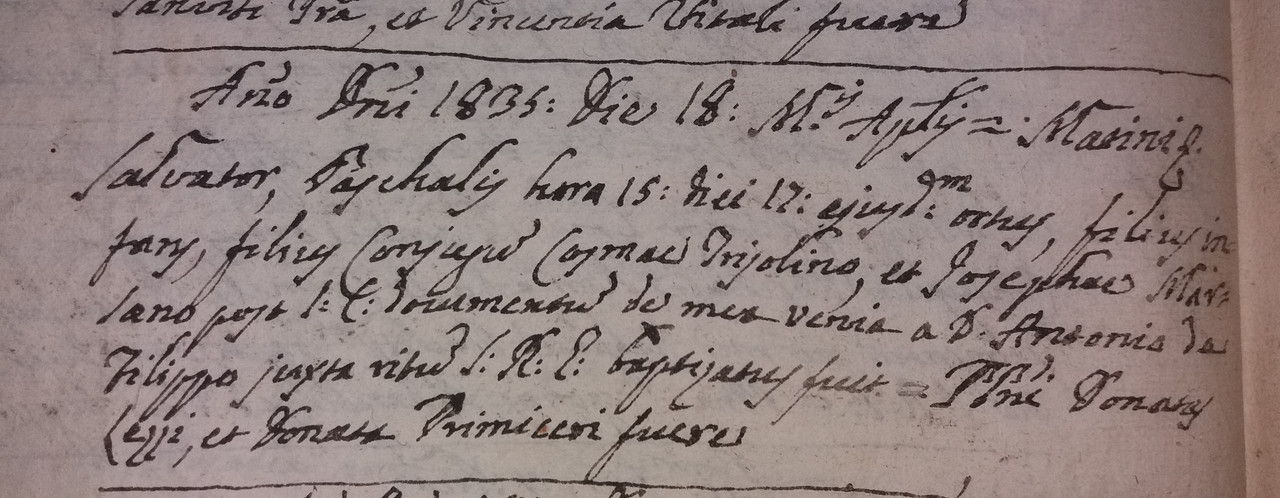 et Vincentia Vitali fuere
Año Dñi 1835: Die 18: M.s Aplis =: Marinus
Salvator, Paschalis hora 15: diei 17: ejusd:m ortus, filius in
fans, filius Conjugũ Cosmae Trisolino, et Josephae Mar=
sano post S: C: documentũ de mea venia a D. Antonio de
Filippo juxta ritũ S: R: E: baptizatus fuit = Pñi Donatus
Lezzi, et Donata Primiceri fuere